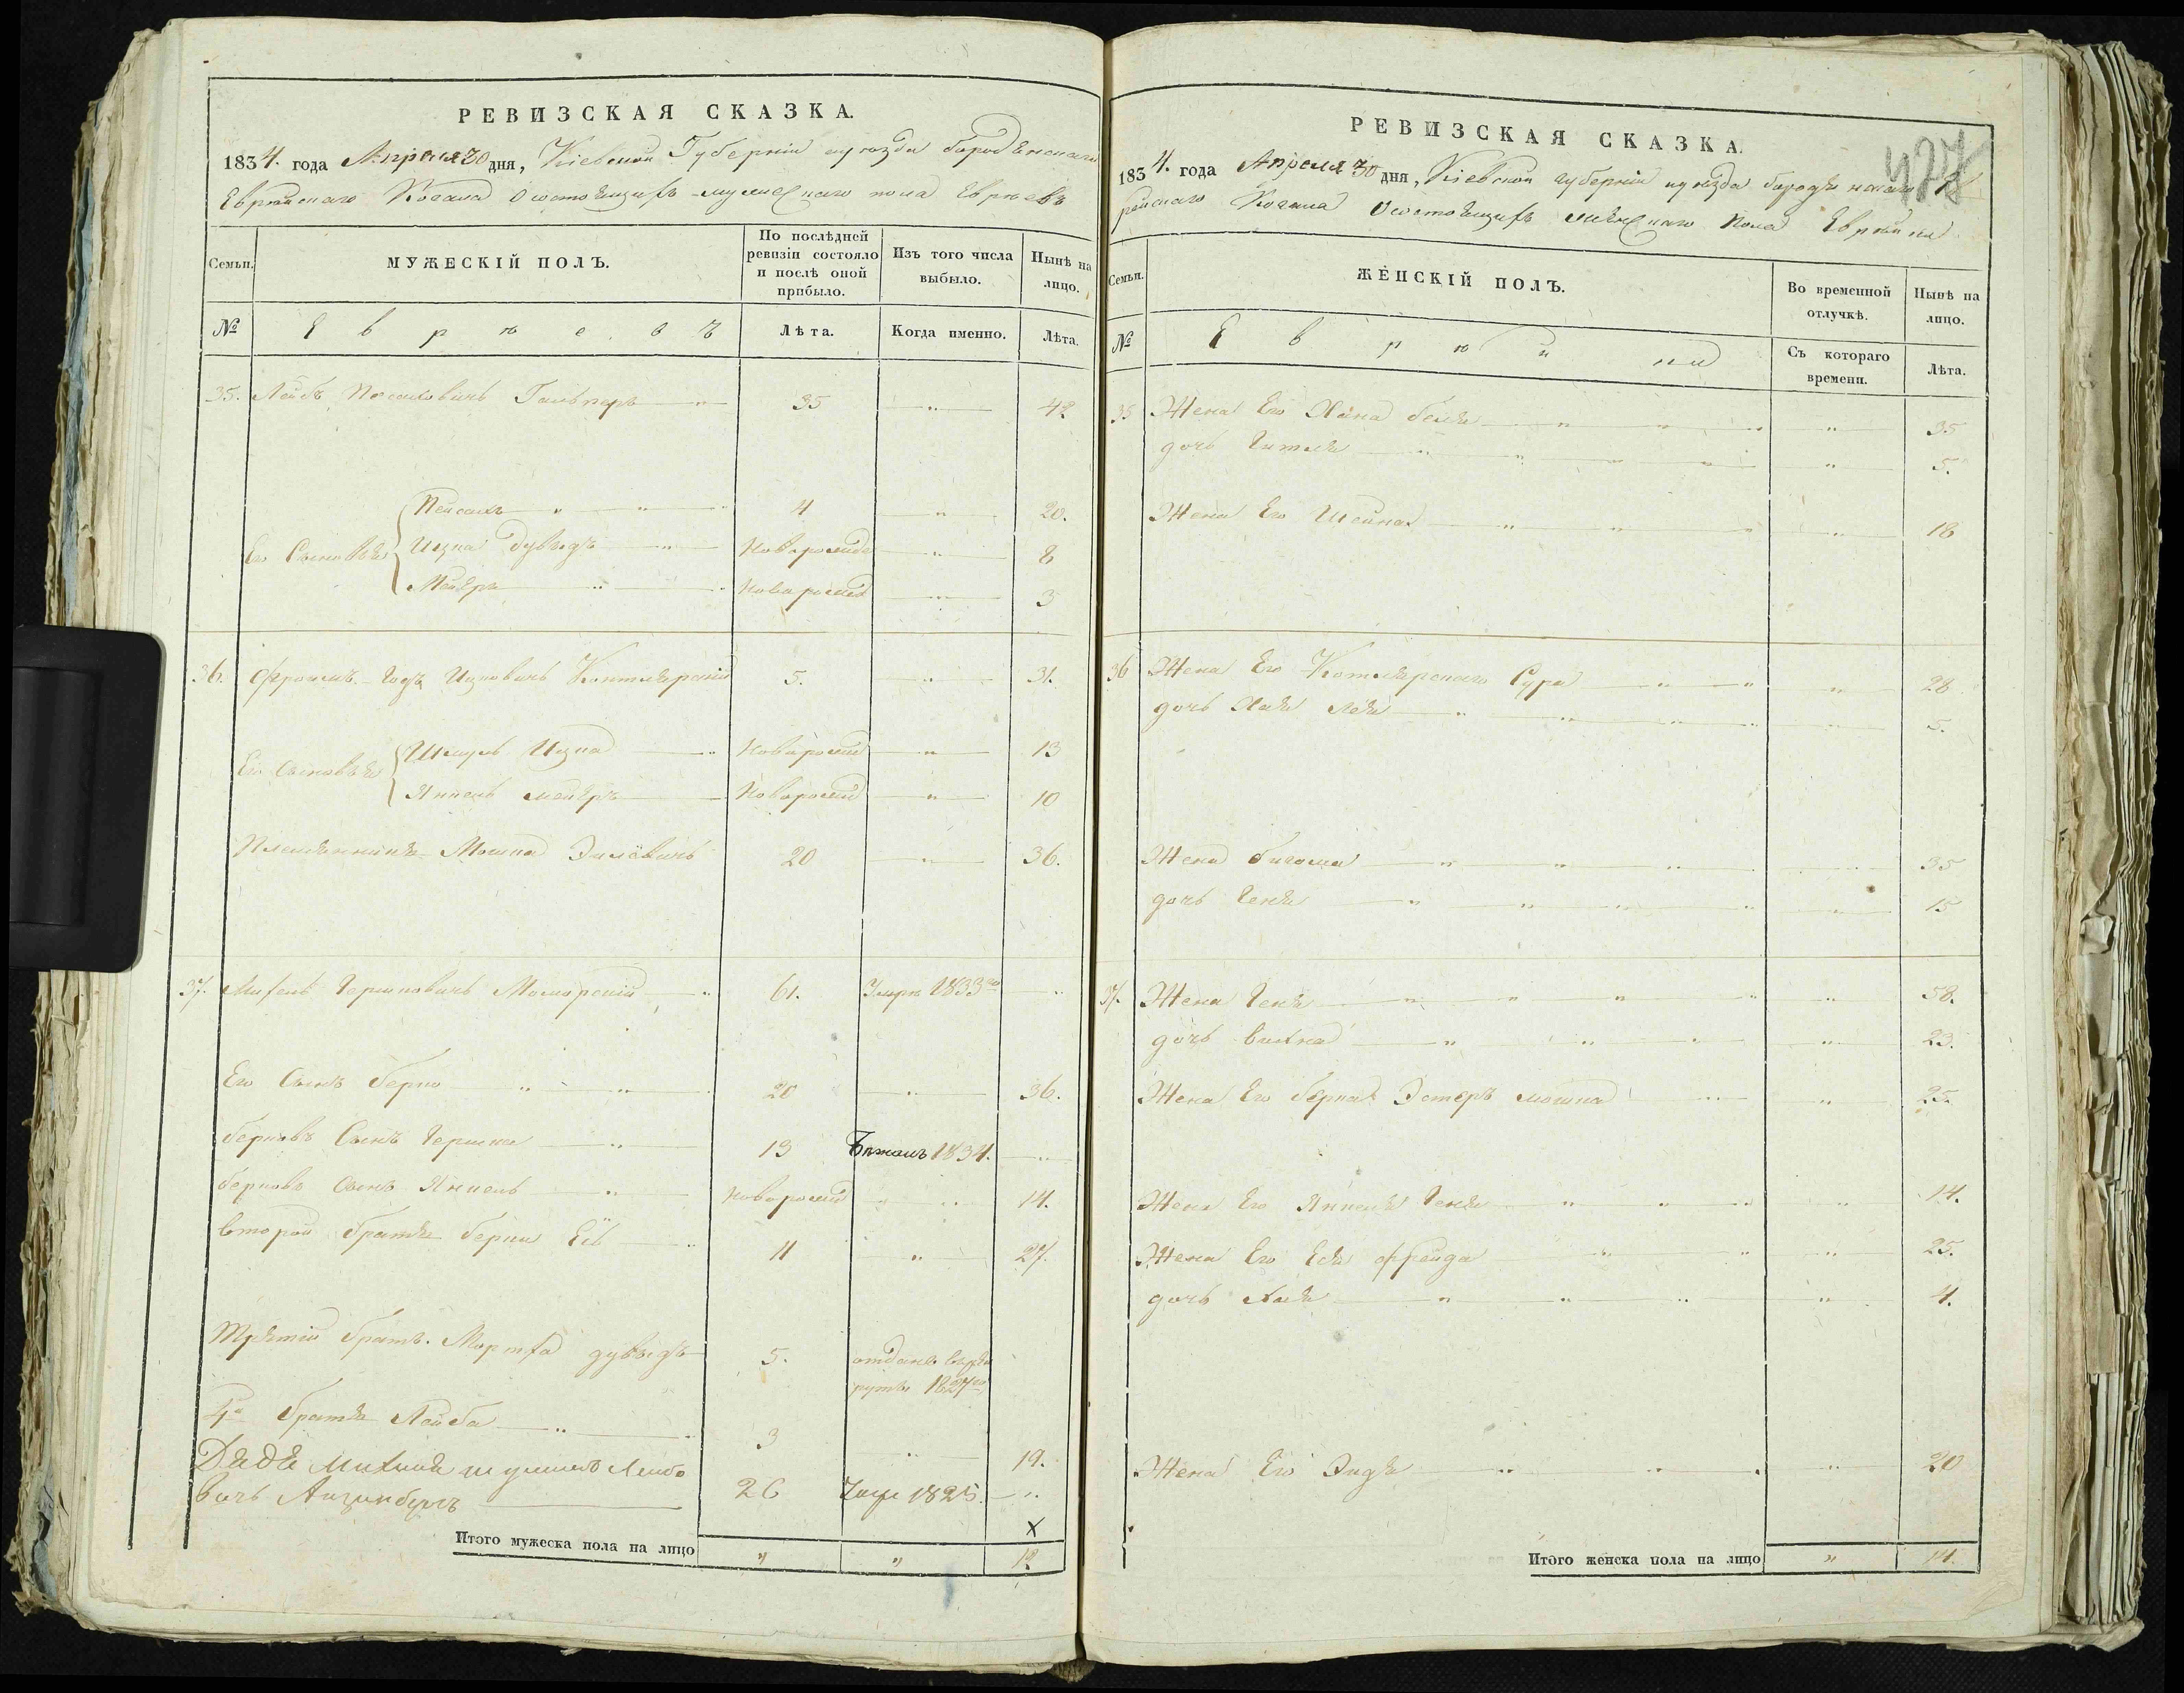 РЕВИЗСКАЯ СКАЗКА.
1834. года Апреля 30 дня, Кіевской Губерніи и уезда
Еврейскаго Кагала о состоящихъ мужескаго пола Евреевъ
Семьи.
МУЖЕСКІЙ ПОЛЪ.
По послѣдней ревизіи состояло и послѣ оной прибыло.
Изъ того числа выбыло.
Нынѣ на лицо.
№
Евреевъ
Лѣта.
Когда именно.
Лѣта.
35. Лейбъ Пейсаховичь Гальперъ 35 42
Пейсахъ 4 20.
Его Сыновья Ицка Дувыдъ Новорожд 8
Мейеръ Новорожд 3
36. Фроимъ Ицковичь Котлярскій 5. 31.
Шмуль Ицка Новорожд 13
Его Сыновья
Янкель Мейеръ Новорожд 10
Племянникъ Мошка 20 36.
37. Михель Гершковичь 61. Умеръ 1833го
Его Сынъ Берко 20 36.
Берковъ Сынъ Гершко 13 Бежалъ 1834.
Берковъ Сынъ Янкель Новорожд 14.
второй братъ Берки 11 27.
Третій братъ Мортха Дувыдъ 5. отданъ въ рек
руты 1827го
4й братъ Лейба 3 19.
Дядя Михеля Лейбо
вичъ 26 1825.
х
Итого мужеска пола на лицо " " 12
РЕВИЗСКАЯ СКАЗКА.
427
1834. года Апреля 30 дня, Кіевской губерніи и уезда Ев
рейскаго Кагала о состоящихъ женскаго пола Еврейки
Семьи.
ЖЕНСКІЙ ПОЛЪ.
Во временной отлучкѣ.
Нынѣ на лицо.
№
Еврейки
Съ котораго времени.
Лѣта.
35 Жена Его Хана Бейля 35
дочь Гитля 5.
Жена Его Шейна 18
36 Жена Его Котлярскаго Сура 28
дочь Хая Лея 5.
Жена 35
дочь Геня 15
37. Жена Геня 58.
дочь 23.
Жена Его Берка Эстеръ 25.
Жена Его Янкеля Геня 14.
Жена Его Фрейда 25.
дочь Хая 4.
Жена Его Эидя 20
Итого женска пола на лицо " 14.